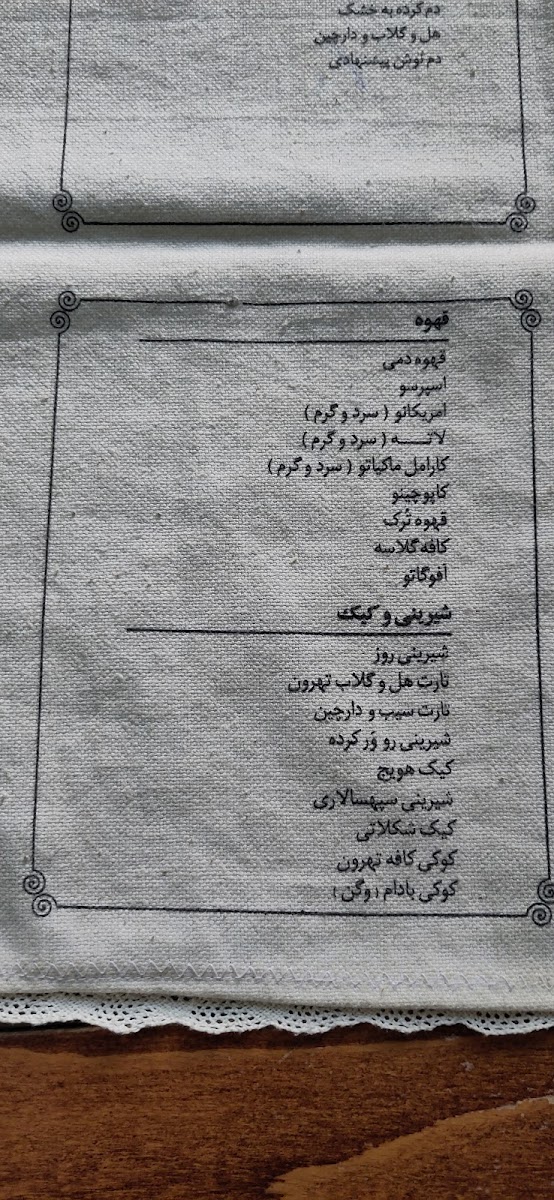 دم کرده به خشک
هل و گلاب و دارچین
دم نوش پیشنهادی
قهوه
قهوه دمی
اسپرسو
امریکانو ( سرد و گرم )
لاتـــه ( سرد و گرم )
کارامل ماکیاتو ( سرد و گرم )
کاپوچینو
قهوه تُرک
کافه گلاسه
آفوگاتو
شیرینی و کیک
شیرینی روز
تارت هل و گلاب تهرون
تارت سیب و دارچین
شیرینی رو وَر کرده
کیک هویج
شیرینی سپهسالاری
کیک شکلاتی
کوکی کافه تهرون
کوکی بادام ( وگن )